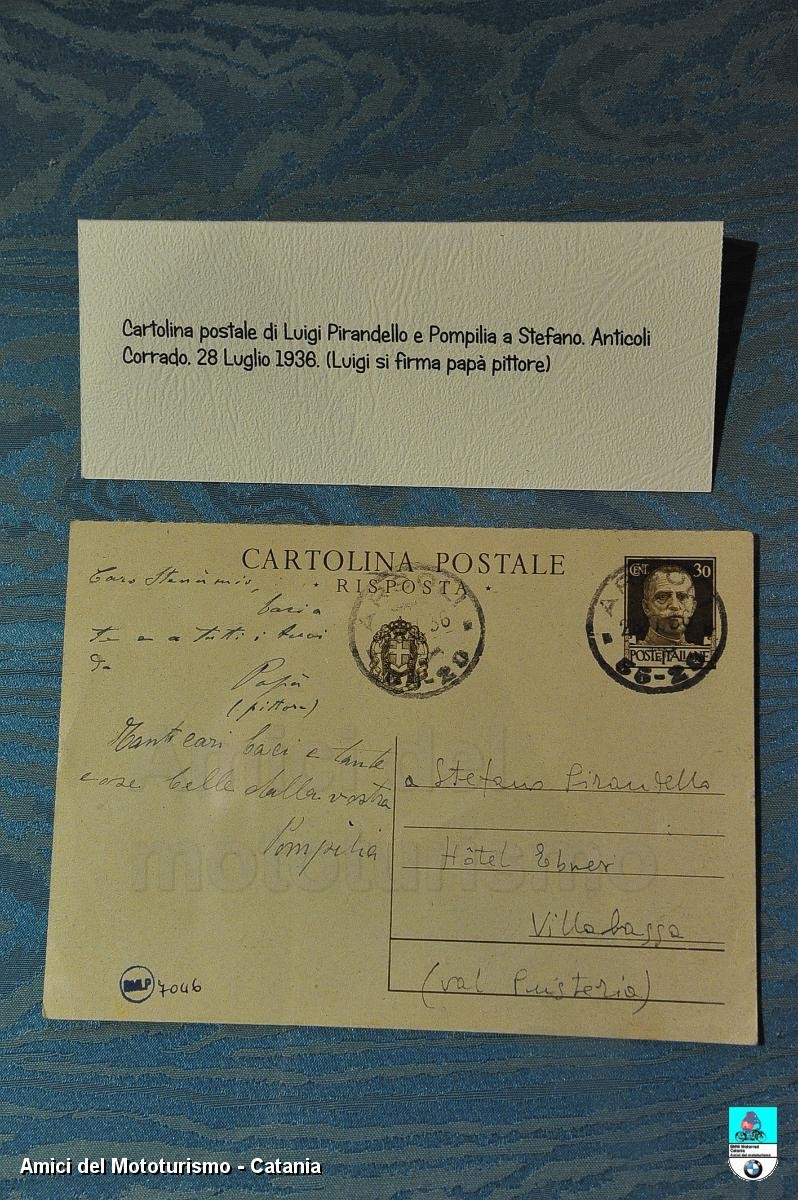 Cartolina postale di Luigi Pirandello e Pompilia a Stefano. Anticoli
Corrado. 28 Luglio 1936. (Luigi si firma papà pittore)
CARTOLINA POSTALE
RISPOSTA
CENT. 30
POSTE ITALIANE
56-20
56-20
Caro
bacia
te e a tutti i tuoi
da
Papà
(pittore)
Tanti cari baci e tante
cose belle dalla vostra
Pompilia
a Stefano Pirandello
Hôtel Ebner
Villabassa
(val Pusteria)
BMLP 7046
Amici del
mototurismo
Amici del Mototurismo - Catania
BMW Motorrad
Catania
Amici del mototurismo